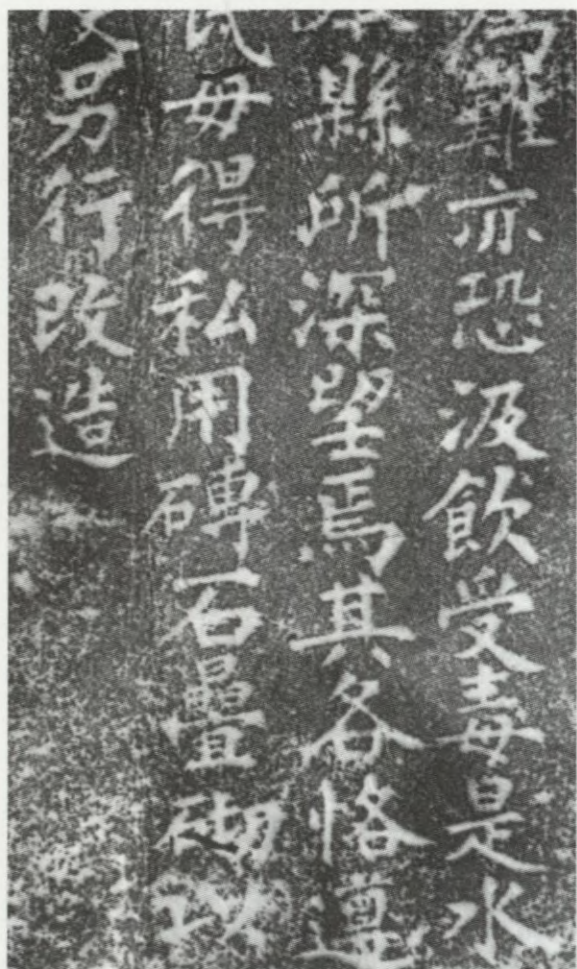 為難亦恐汲飲受毒是水
縣所深望焉其各恪遵
民毋得私用磚石疊砌以
另行改造